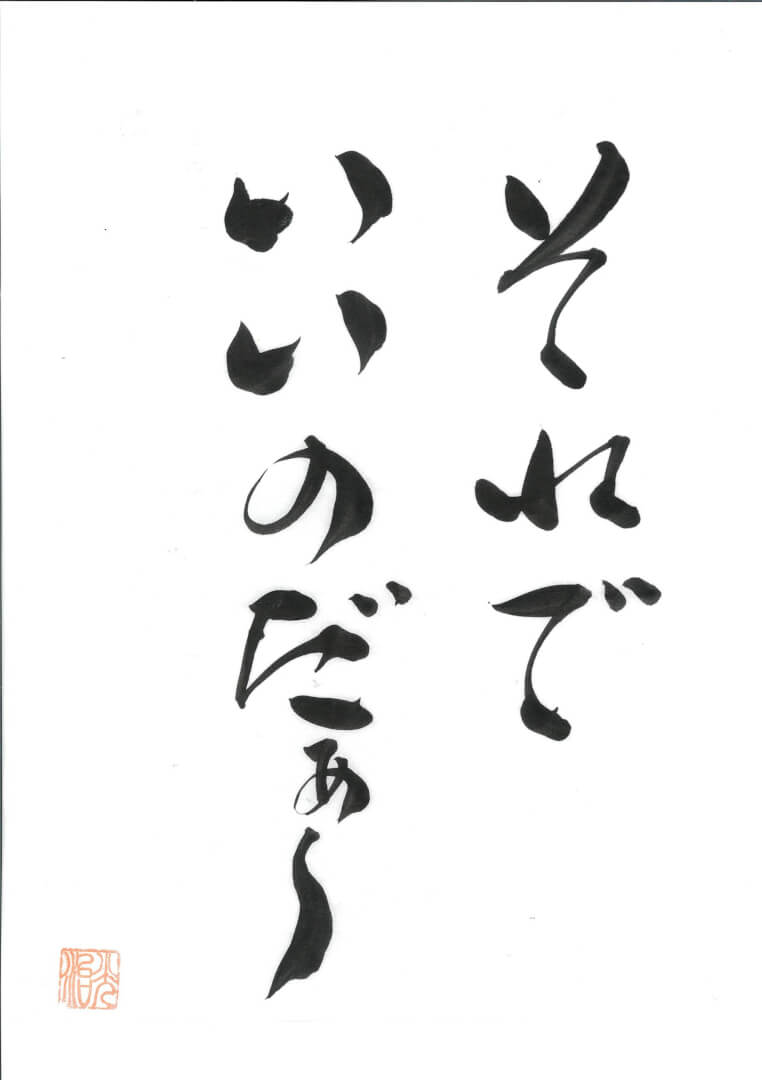 それで
いいのだぁ〜